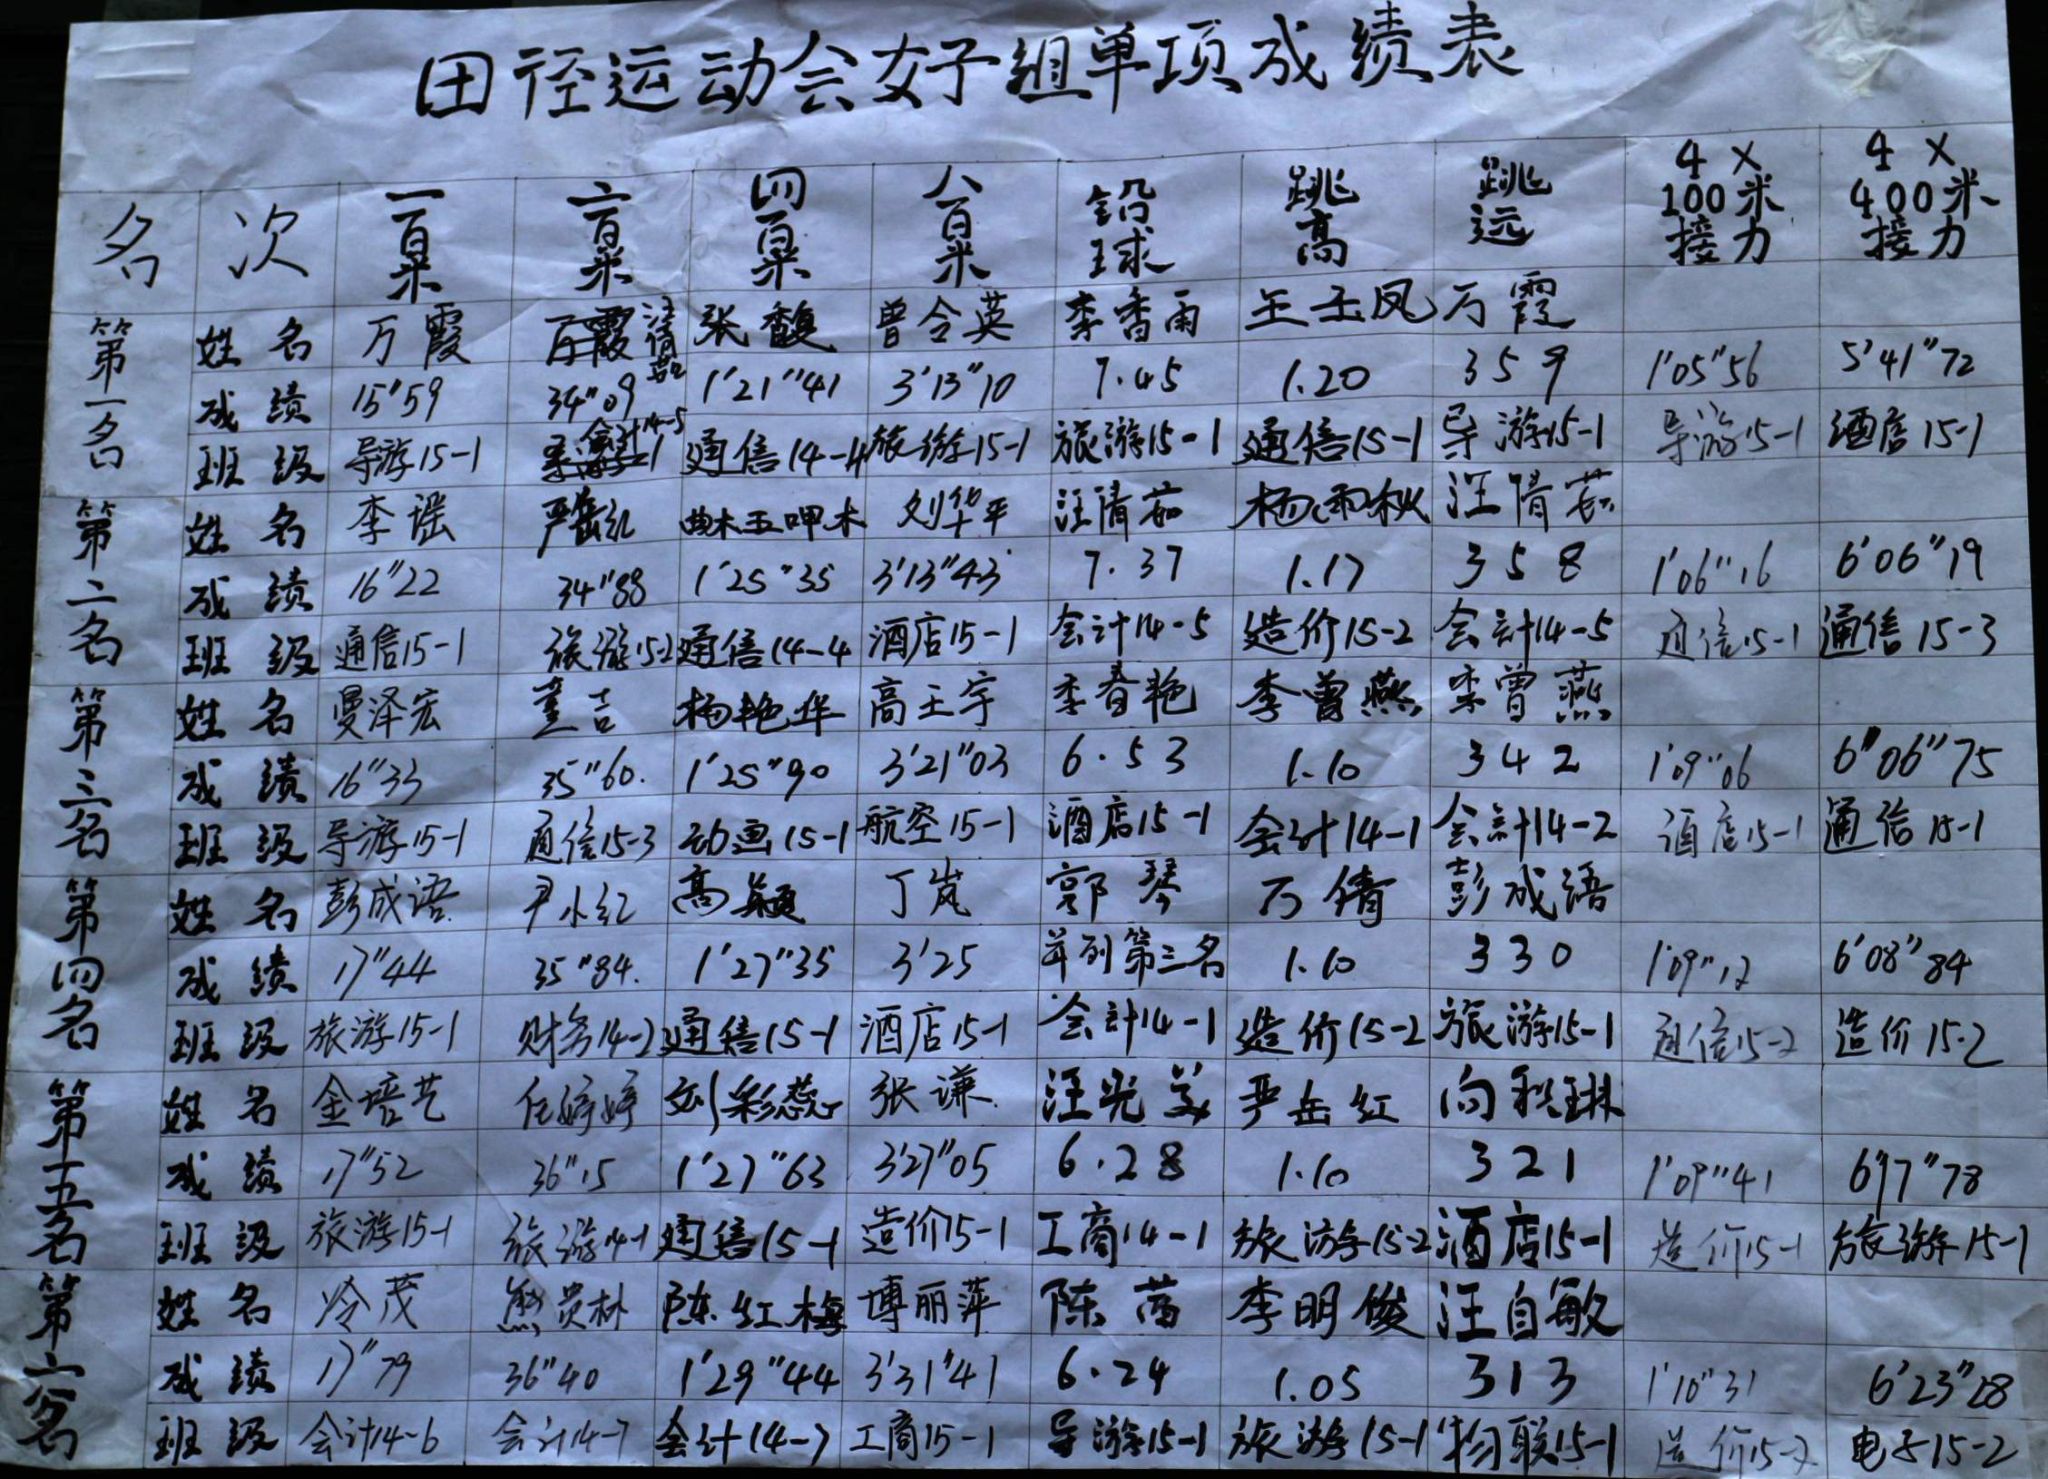 田径运动会女子组单项成绩表
名次 一百米 二百米 四百米 八百米 铅球 跳高 跳远 4×100米接力 4×400米接力
第一名 姓名 万霞 汪倩茹 张馥 曾令英 李香雨 王玉凤 万霞
成绩 15'59 34"09 1'21"41 3'13"10 7.45 1.20 359 1'05"56 5'41"72
班级 导游15-1 会计14-5 通信14-4 旅游15-1 旅游15-1 通信15-1 导游15-1 导游15-1 酒店15-1
第二名 姓名 李瑶 严岳红 曲木五呷木 刘华平 汪倩茹 杨雨秋 汪倩茹
成绩 16"22 34"88 1'25"35 3'13"43 7.37 1.17 358 1'06"16 6'06"19
班级 通信15-1 旅游15-2 通信14-4 酒店15-1 会计14-5 造价15-2 会計14-5 通信15-1 通信15-3
第三名 姓名 曼泽宏 童吉 杨艳华 高王宇 李春艳 李曾燕 李曾燕
成绩 16"33 35"60. 1'25"90 3'21"03 6.53 1.10 342 1'09"06 6"06"75
班级 导游15-1 通信15-3 动画15-1 航空15-1 酒店15-1 会计14-1 会計14-2 酒店15-1 通信15-1
第四名 姓名 彭成语 尹小红 高颖 丁岚 郭琴 万倩 彭成语
成绩 17"44 35"84. 1'27"35 3'25 并列第三名 1.10 330 1'09"12 6'08"84
班级 旅游15-1 财务14-2 通信15-1 酒店15-1 会計14-1 造价15-2 旅游15-1 通信15-2 造价15-2
第五名 姓名 金培艺 任婷婷 刘彩蕊 张谦 汪光美 严岳红 向秋琳
成绩 17"52 36"15 1'27"63 3'27"05 6.28 1.10 321 1'09"41 6'17"78
班级 旅游15-1 旅游14-1 通信15-1 造价15-1 工商14-1 旅游15-2 酒店15-1 造价15-1 旅游15-1
第六名 姓名 冷茂 熊贵林 陈红梅 博丽萍 陈茜 李明俊 汪自敏
成绩 17"79 36"40 1'29"44 3'31'41 6.24 1.05 313 1'10"31 6'23"28
班级 会计14-6 会计14-7 会计14-7 工商15-1 导游15-1 旅游15-1 物联15-1 造价15-2 电子15-2